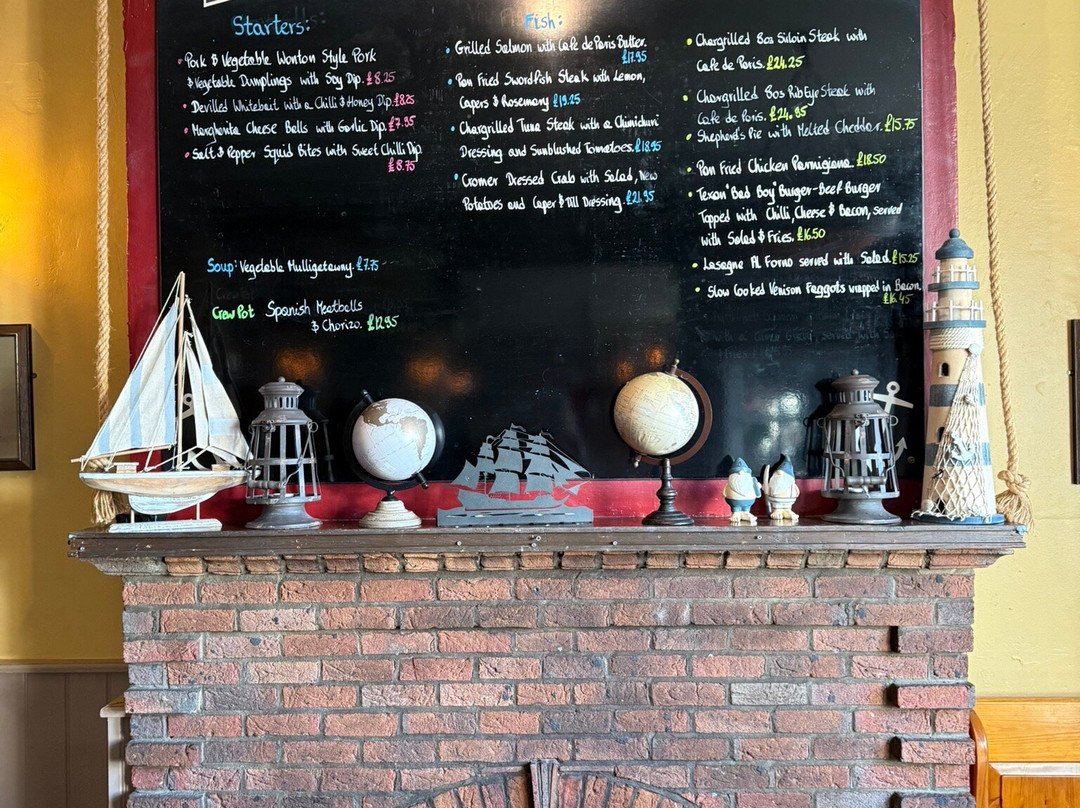 Starters:
Pork & Vegetable Wonton Style Pork
& Vegetable Dumplings with Soy Dip. £8.25
Devilled Whitebait with a Chilli & Honey Dip. £8.25
Margherita Cheese Bells with Garlic Dip. £7.95
Salt & Pepper Squid Bites with Sweet Chilli Dip
£8.75
Soup: Vegetable Mulligatawny. £7.75
Crew Pot Spanish Meatballs
& Chorizo. £12.95
Fish:
Grilled Salmon with Cafe de Paris Butter.
£17.95
Pan Fried Swordfish Steak with Lemon,
Capers & Rosemary £19.25
Chargrilled Tuna Steak with a Chimichuri
Dressing and Sunblushed Tomatoes. £18.95
Cromer Dressed Crab with Salad, New
Potatoes and Caper & Dill Dressing. £21.95
Chargrilled 8oz Sirloin Steak with
Cafe de Paris. £24.25
Chargrilled 8oz RibEye Steak with
Cafe de Paris. £24.95
Shepherd's Pie with Melted Cheddar. £15.75
Pan Fried Chicken Parmigiana. £18.50
Texan "Bad Boy" Burger-Beef Burger
Topped with Chilli, Cheese & Bacon, served
with Salad & Fries. £16.50
Lasagne Al Forno served with Salad. £15.25
Slow Cooked Venison Faggots wrapped in Bacon.
£16.45